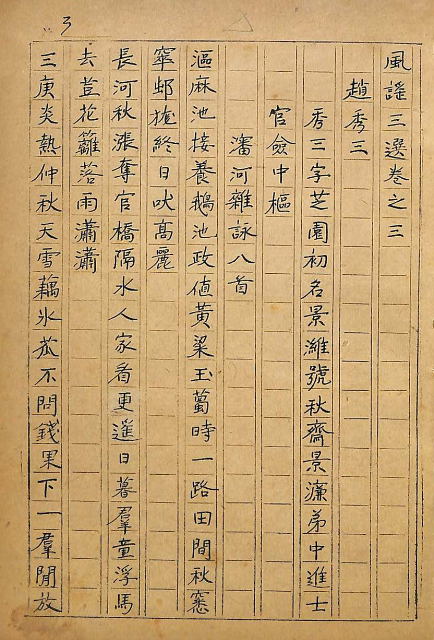 3
風謠三選卷之三
趙秀三
秀三字芝園初名景濰號秋齋景濂弟中進士
官僉中樞
瀋河雜詠八首
漚麻池接養鵝池政值黃粱玉薥時一路田間秋窸
窣蚏㨾終日吠高麗
長河秋漲奪官橋隔水人家看更遙日暮羣童浮馬
去荳花籬落雨瀟瀟
三庚炎熱仲秋天雪藕氷菰不問錢果下一羣閒放